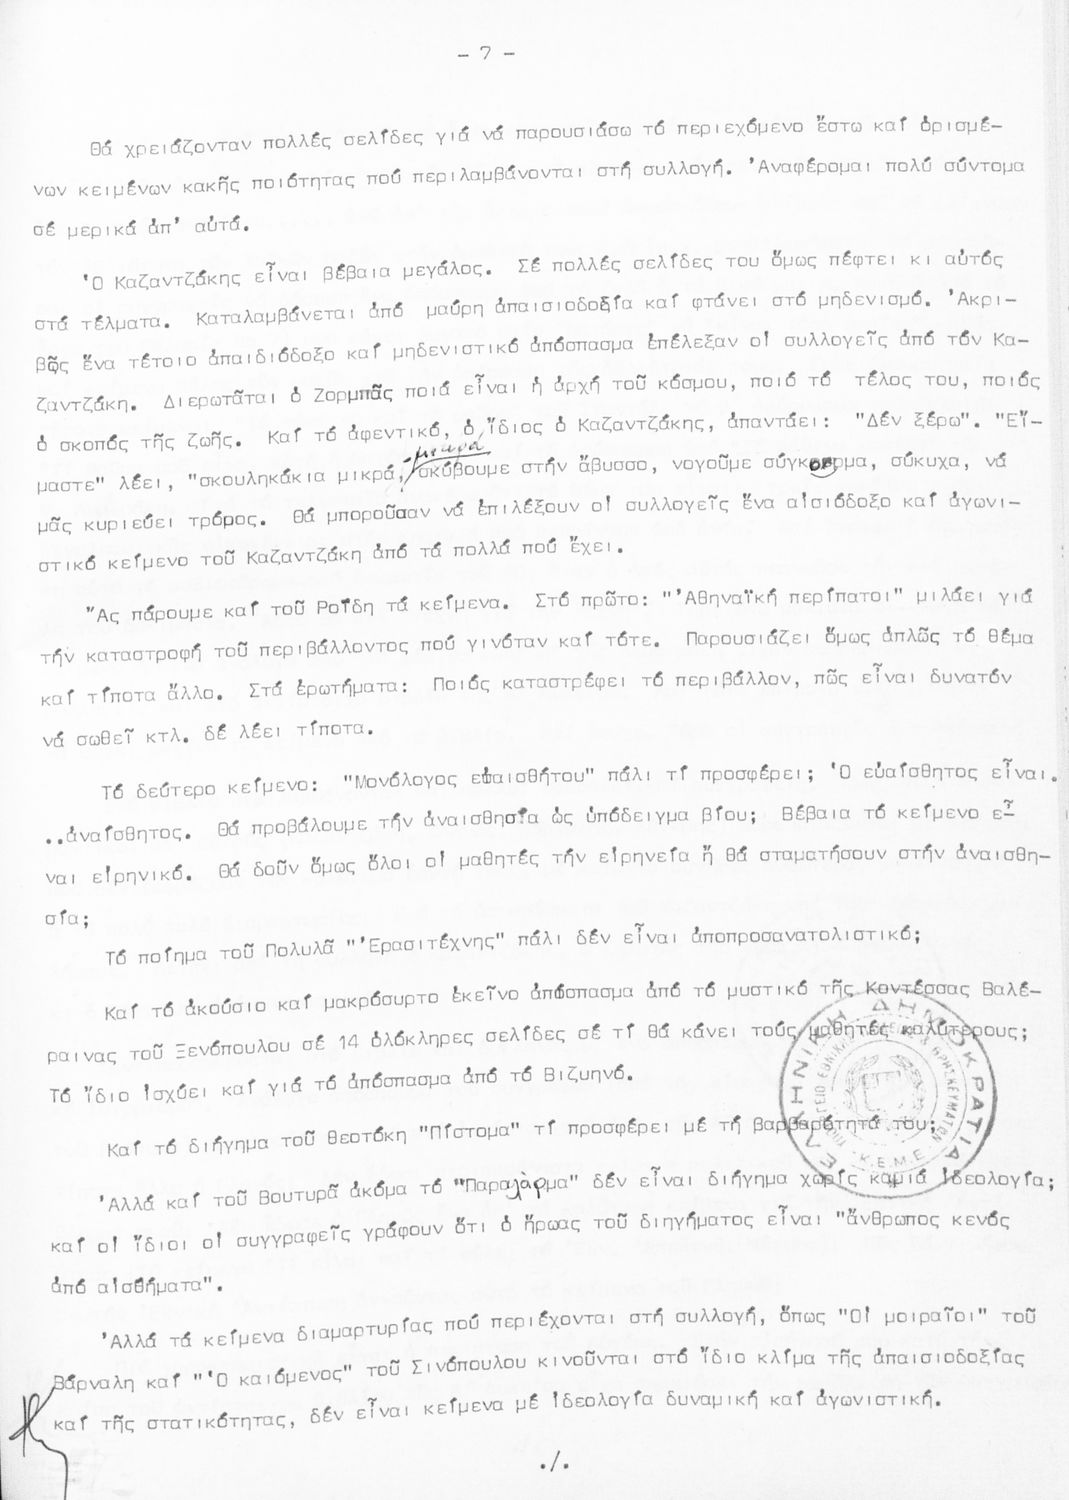 - 7 -
Θά χρειάζονταν πολλές σελίδες γιά νά παρουσιάσω τό περιεχόμενο ἔστω καί ὁρισμέ-
νων κειμένων κακῆς ποιότητας πού περιλαμβάνονται στή συλλογή. Ἀναφέρομαι πολύ σύντομα
σέ μερικά ἀπ' αὐτά.
Ὁ Καζαντζάκης εἶναι βέβαια μεγάλος. Σέ πολλές σελίδες του ὅμως πέφτει κι αὐτός
στά τέλματα. Καταλαμβάνεται ἀπό μαύρη ἀπαισιοδοξία καί φτάνει στό μηδενισμό. Ἀκρι-
βῶς ἕνα τέτοιο ἀπαιδιόδοξο καί μηδενιστικό ἀπόσπασμα ἐπέλεξαν οἱ συλλογεῖς ἀπό τόν Κα-
ζαντζάκη. Διερωτᾶται ὁ Ζορμπᾶς ποιά εἶναι ἡ ἀρχή τοῦ κόσμου, ποιό τό τέλος του, ποιός
ὁ σκοπός τῆς ζωῆς. Καί τό ἀφεντικό, ὁ ἴδιος ὁ Καζαντζάκης, ἀπαντάει: "Δέν ξέρω". "Εἴ-
μαστε" λέει, "σκουληκάκια μικρά, μικρά σκύβουμε στήν ἄβυσσο, νογοῦμε σύγκορμα, σύκυχα, νά
μᾶς κυριεύει τρόμος. Θά μποροῦσαν νά ἐπιλέξουν οἱ συλλογεῖς ἕνα αἰσιόδοξο καί ἀγωνι-
στικό κείμενο τοῦ Καζαντζάκη ἀπό τά πολλά πού ἔχει.
Ἄς πάρουμε καί τοῦ Ροΐδη τά κείμενα. Στό πρῶτο: "Ἀθηναϊκή περίπατοι" μιλάει γιά
τήν καταστροφή τοῦ περιβάλλοντος πού γινόταν καί τότε. Παρουσιάζει ὅμως ἁπλῶς τό θέμα
καί τίποτα ἄλλο. Στά ἐρωτήματα: Ποιός καταστρέφει τό περιβάλλον, πῶς εἶναι δυνατόν
νά σωθεῖ κτλ. δέ λέει τίποτα.
Τό δεύτερο κείμενο: "Μονόλογος εὐαισθήτου" πάλι τί προσφέρει; Ὁ εὐαίσθητος εἶναι.
..ἀναίσθητος. Θά προβάλουμε τήν ἀναισθησία ὡς ὑπόδειγμα βίου; Βέβαια τό κείμενο εἶ-
ναι εἰρηνικό. Θά δοῦν ὅμως ὅλοι οἱ μαθητές τήν εἰρηνεία ἤ θά σταματήσουν στήν ἀναισθη-
σία;
Τό ποίημα τοῦ Πολυλᾶ "Ἐρασιτέχνης" πάλι δέν εἶναι ἀποπροσανατολιστικό;
Καί τό ἀκούσιο καί μακρόσυρτο ἐκεῖνο ἀπόσπασμα ἀπό τό μυστικό τῆς Κοντέσσας Βαλέ-
ραινας τοῦ Ξενόπουλου σέ 14 ὁλόκληρες σελίδες σέ τί θά κάνει τούς μαθητές καλύτερους;
Τό ἴδιο ἰσχύει καί γιά τό ἀπόσπασμα ἀπό τό Βιζυηνό.
Καί τό διήγημα τοῦ Θεοτόκη "Πίστομα" τί προσφέρει μέ τή βαρβαρότητά του;
Ἀλλά καί τοῦ Βουτυρᾶ ἀκόμα τό "Παραλάρμα" δέν εἶναι διήγημα χωρίς καμιά ἰδεολογία;
καί οἱ ἴδιοι οἱ συγγραφεῖς γράφουν ὅτι ὁ ἥρωας τοῦ διηγήματος εἶναι "ἄνθρωπος κενός
ἀπό αἰσθήματα".
Ἀλλά τά κείμενα διαμαρτυρίας πού περιέχονται στή συλλογή, ὅπως "Οἱ μοιραῖοι" τοῦ
Βάρναλη καί "Ὁ καιόμενος" τοῦ Σινόπουλου κινοῦνται στό ἴδιο κλίμα τῆς ἀπαισιοδοξίας
καί τῆς στατικότητας, δέν εἶναι κείμενα μέ ἰδεολογία δυναμική καί ἀγωνιστική.
./.
ΕΛΛΗΝΙΚΗ ΔΗΜΟΚΡΑΤΙΑ
ΥΠΟΥΡΓΕΙΟ ΕΘΝΙΚΗΣ ΠΑΙΔΕΙΑΣ & ΘΡΗΣΚΕΥΜΑΤΩΝ
Κ.Ε.Μ.Ε.